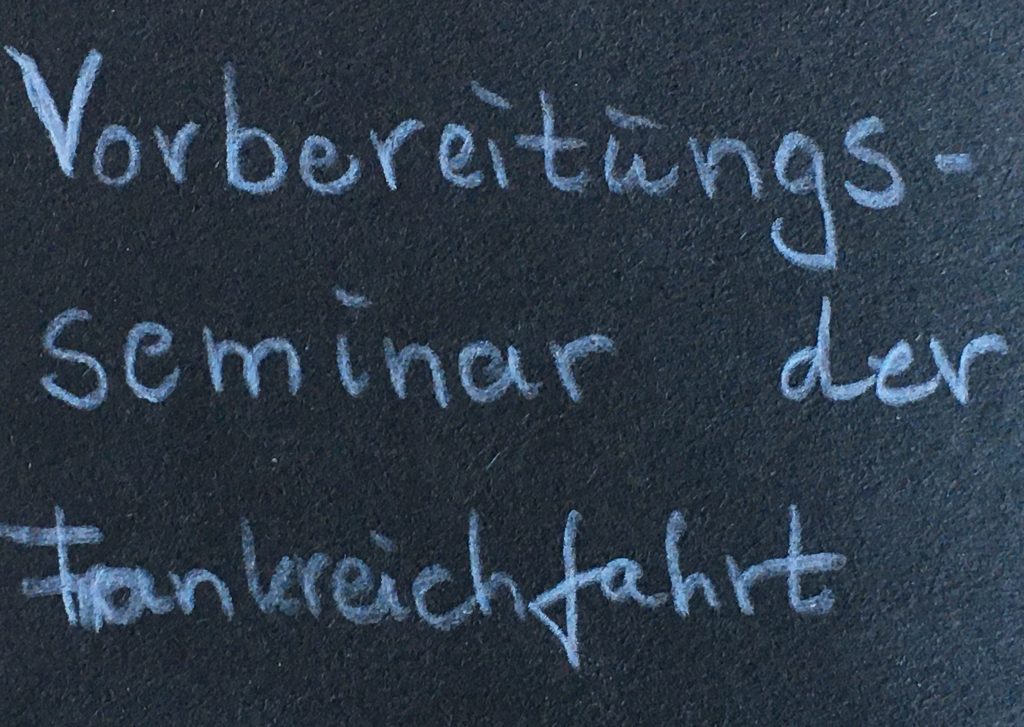 Vorbereitungs-
seminar der
Frankreichfahrt